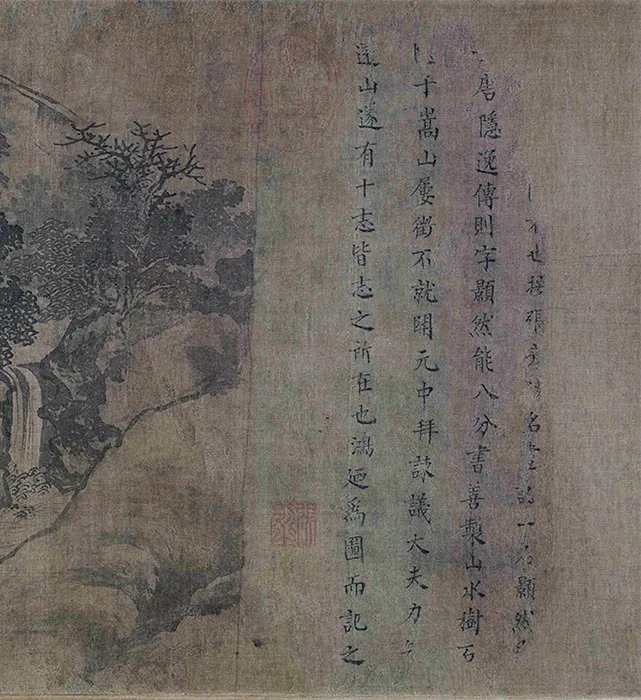 也按張名一名顥然
唐隱逸傳則字顥然能八分書善製山水樹石
于嵩山屢徵不就開元中拜諫議大夫力
還山遂有十志皆志之所在也鴻廼爲圖而記之